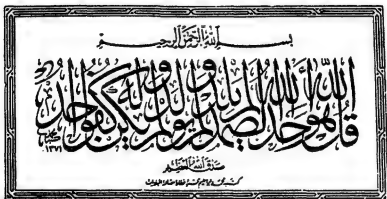 بسم الله الرحمن الرحيم
قل هو الله أحد الله الصمد لم يلد ولم يولد ولم يكن له كفوا أحد
صدق الله العظيم